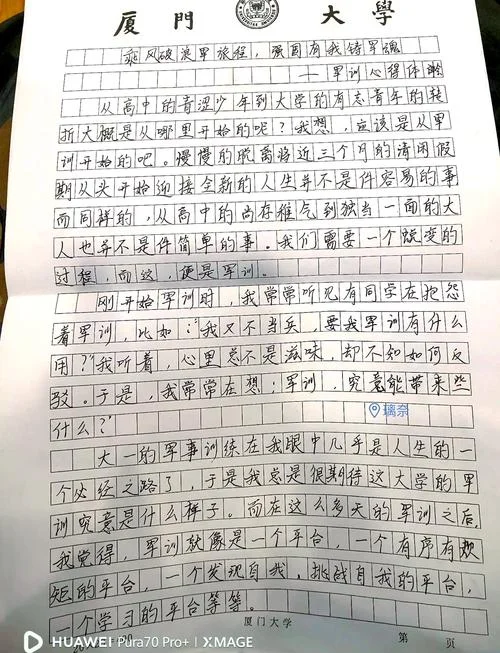 厦門大學
乘风破浪军旅程，强国有我铸军魂
——军训心得体会
从高中的青涩少年到大学的有志青年的转
折大概是从哪里开始的呢？我想，应该是从军
训开始的吧。慢慢的脱离将近三个月的清闲假
期从头开始迎接全新的人生并不是件容易的事
而同样的，从高中的尚存稚气到独当一面的大
人也并不是件简单的事。我们需要一个蜕变的
过程，而这，便是军训。
刚开始军训时，我常常听见有同学在抱怨
着军训，比如："我又不当兵，要我军训有什么
用？"我听着，心里总不是滋味，却不知如何反
驳。于是，我常常在想：军训，究竟能带来些
什么？
璃奈
大一的军事训练在我眼中几乎是人生的一
个必经之路了，于是我总是很期待这大学的军
训究竟是什么样子。而在这么多天的军训之后，
我觉得，军训就像是一个平台，一个有序有规
矩的平台，一个发现自我，挑战自我的平台，
一个学习的平台等等。
厦门大学
第 页
HUAWEI Pura70 Pro+ | XMAGE